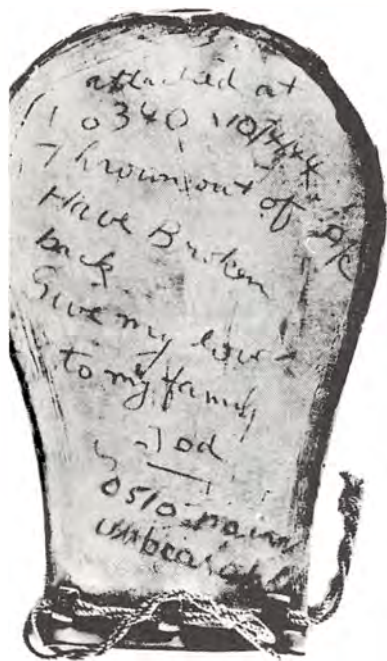 attacked at
0340 10/4/44
Thrown out of a/c
Have Broken
back
Give my love
to my family
0510 pains
unbearable